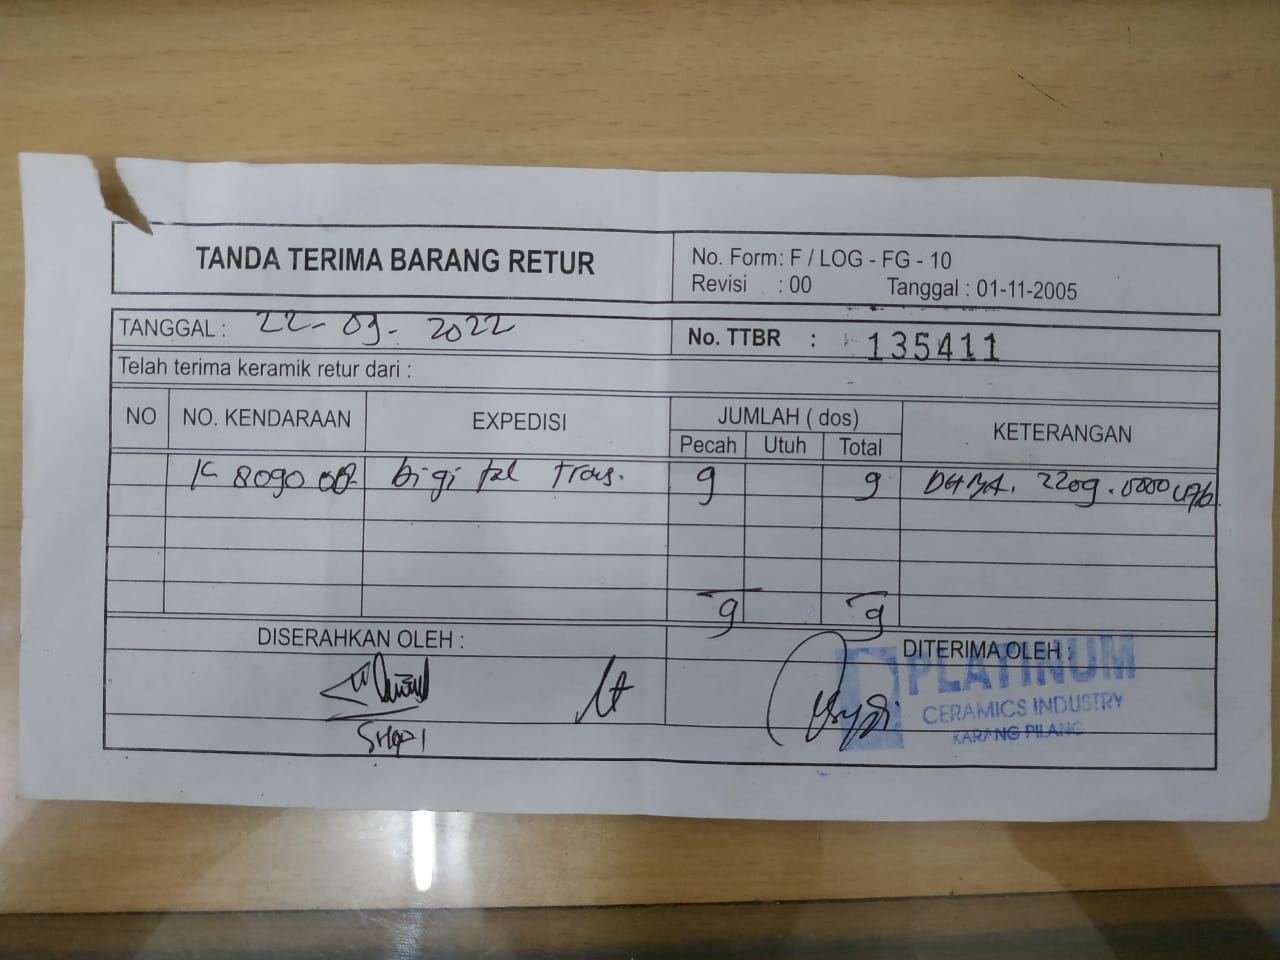 TANDA TERIMA BARANG RETUR
No. Form: F / LOG - FG - 10
Revisi : 00 Tanggal : 01-11-2005
TANGGAL : 22-09-2022
No. TTBR : 135411
Telah terima keramik retur dari :
NO NO. KENDARAAN EXPEDISI JUMLAH ( dos ) KETERANGAN
Pecah Utuh Total
K 8090 Digital Trans. 9 9 2209.
9 9
DISERAHKAN OLEH :
DITERIMA OLEH :
PLATINUM
CERAMICS INDUSTRY
KARANG PILANG